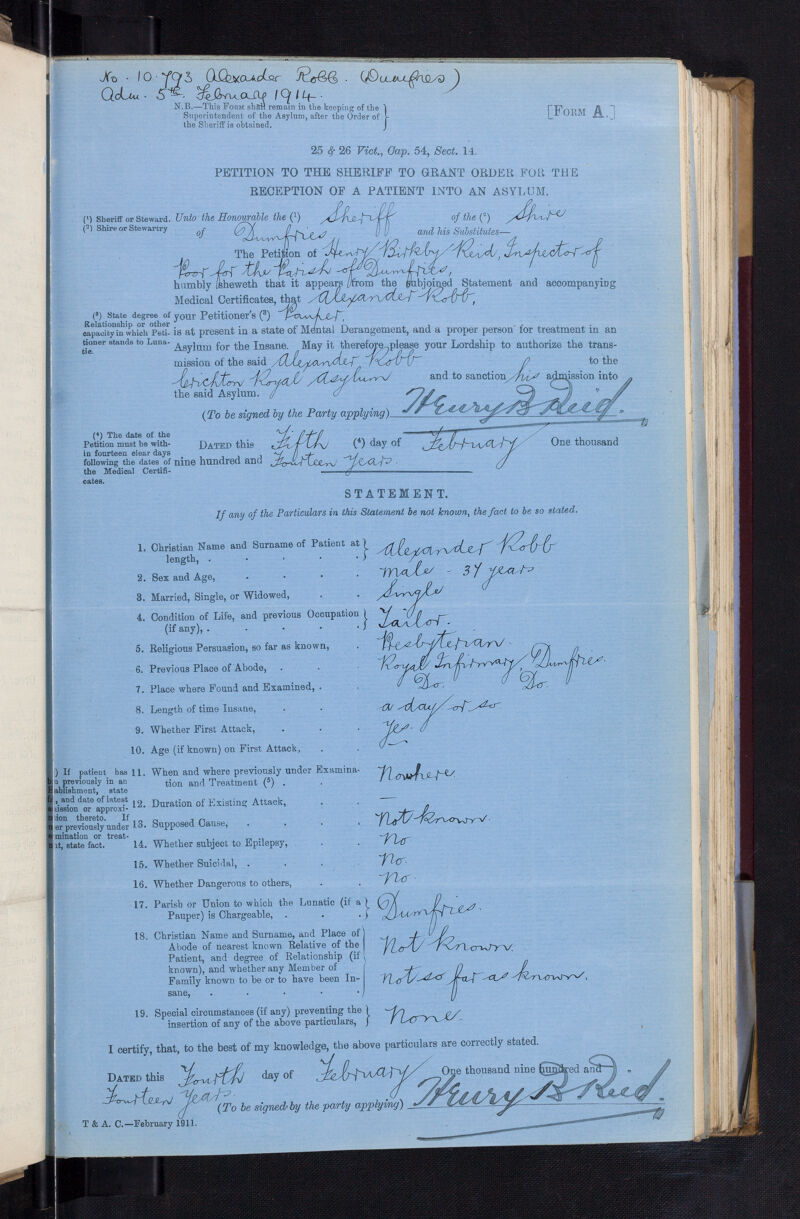 No. 10.793 Alexander Robb. (Dumfries)
Adm. 5th. February 1914.
N.B.—This Form shall remain in the keeping of the
Superintendent of the Asylum, after the Order of
the Sheriff is obtained.
[Form A.]
25 & 26 Vict., Cap. 54, Sect. 14.
PETITION TO THE SHERIFF TO GRANT ORDER FOR THE
RECEPTION OF A PATIENT INTO AN ASYLUM.
(¹) Sheriff or Steward.
(²) Shire or Stewartry
Unto the Honourable the (¹) Sheriff of the (²) Shire
of Dumfries and his Substitutes—
The Petition of Henry Birkby Reid, Inspector of
Poor for the Parish of Dumfries,
humbly sheweth that it appears from the subjoined Statement and accompanying
Medical Certificates, that Alexander Robb,
(³) State degree of
Relationship or other
capacity in which Peti-
tioner stands to Luna-
tic.
your Petitioner's (³) Pauper,
is at present in a state of Mental Derangement, and a proper person for treatment in an
Asylum for the Insane. May it therefore please your Lordship to authorize the trans-
mission of the said Alexander Robb to the
Crichton Royal Asylum and to sanction his admission into
the said Asylum.
(To be signed by the Party applying) Henry B Reid.
(⁴) The date of the
Petition must be with-
in fourteen clear days
following the dates of
the Medical Certifi-
cates.
Dated this Fifth (⁴) day of February One thousand
nine hundred and Fourteen years.
STATEMENT.
If any of the Particulars in this Statement be not known, the fact to be so stated.
1. Christian Name and Surname of Patient at
length, . Alexander Robb
2. Sex and Age, Male - 37 years
3. Married, Single, or Widowed, Single
4. Condition of Life, and previous Occupation
(if any), . Tailor.
5. Religious Persuasion, so far as known, Presbyterian.
6. Previous Place of Abode, . Royal Infirmary, Dumfries.
7. Place where Found and Examined, . Do. Do.
8. Length of time Insane, a day or so
9. Whether First Attack, Yes.
10. Age (if known) on First Attack, —
) If patient has
n previously in an
ablishment, state
, and date of latest
ission or approxi-
tion thereto. If
er previously under
mination or treat-
nt, state fact.
11. When and where previously under Examina-
tion and Treatment (⁵) . Nowhere
12. Duration of Existing Attack, —
13. Supposed Cause, Not known
14. Whether subject to Epilepsy, No
15. Whether Suicidal, . No.
16. Whether Dangerous to others, No.
17. Parish or Union to which the Lunatic (if a
Pauper) is Chargeable, . Dumfries.
18. Christian Name and Surname, and Place of
Abode of nearest known Relative of the
Patient, and degree of Relationship (if
known), and whether any Member of
Family known to be or to have been In-
sane, Not known.
Not so far as known.
19. Special circumstances (if any) preventing the
insertion of any of the above particulars, None.
I certify, that, to the best of my knowledge, the above particulars are correctly stated.
Dated this Fourth day of February One thousand nine hundred and
Fourteen years.
(To be signed by the party applying) Henry B Reid.
T & A. C.—February 1911.